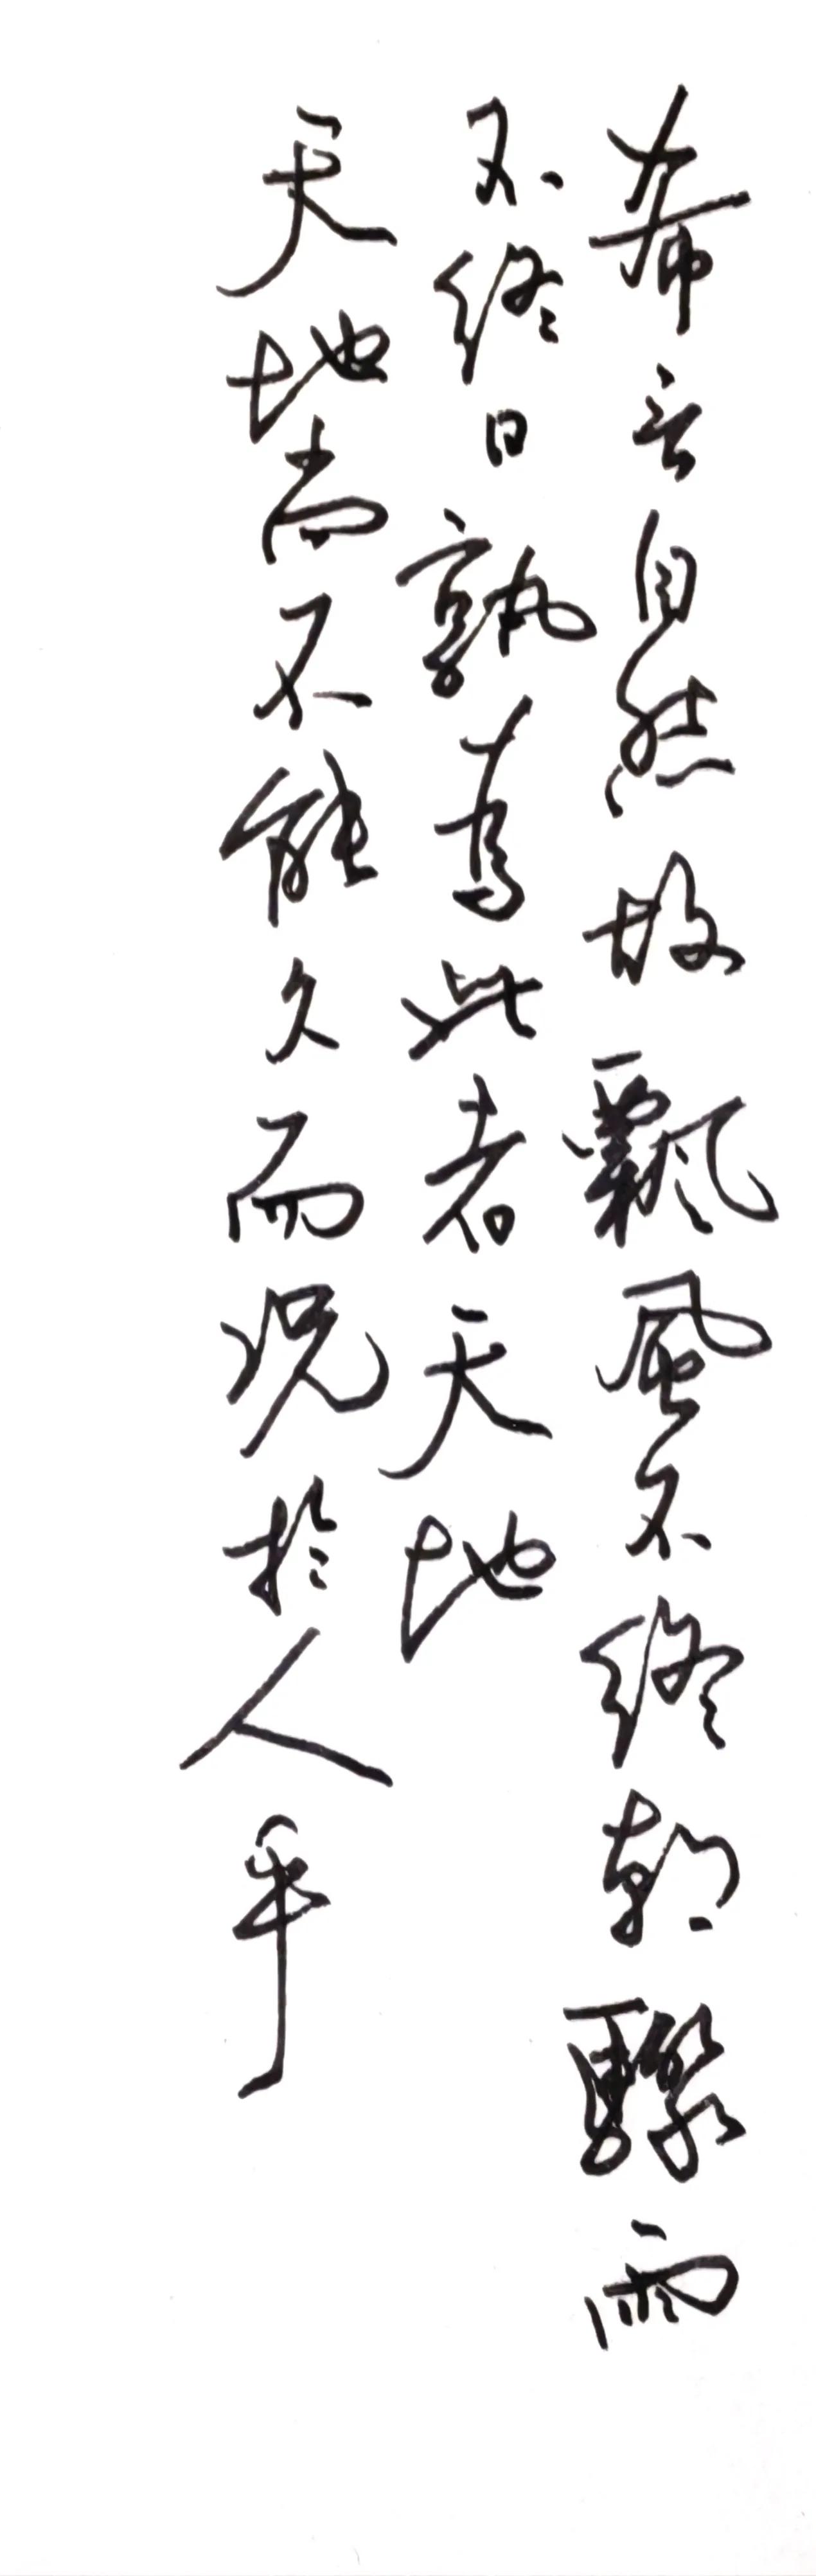 希言自然故飄風不終朝驟雨
不終日孰為此者天地
天地尚不能久而況於人乎